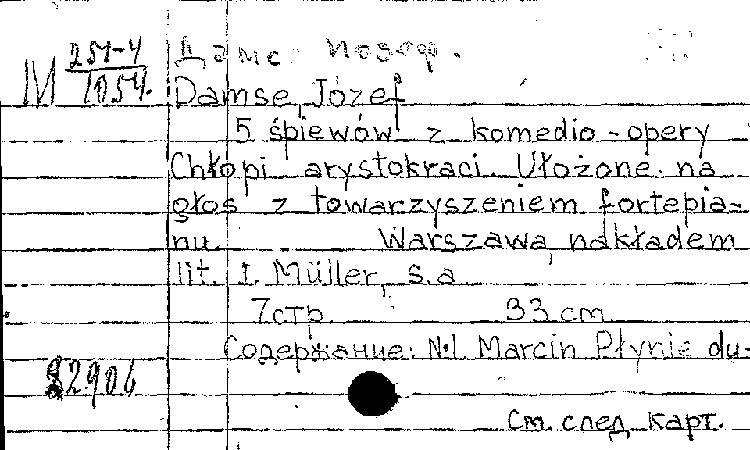 М 251-4
1054.
Дамсе Иозеф.
Damse, Józef
5 śpiewów z komedio-opery
Chłopi arystokraci. Ułożone na
głos z towarzyszeniem fortepia-
nu. Warszawa, nakładem
lit. I. Müller, s.a
7стр. 33 cm
Содержание: №1. Marcin Płynie du-
82906
См. след. карт.